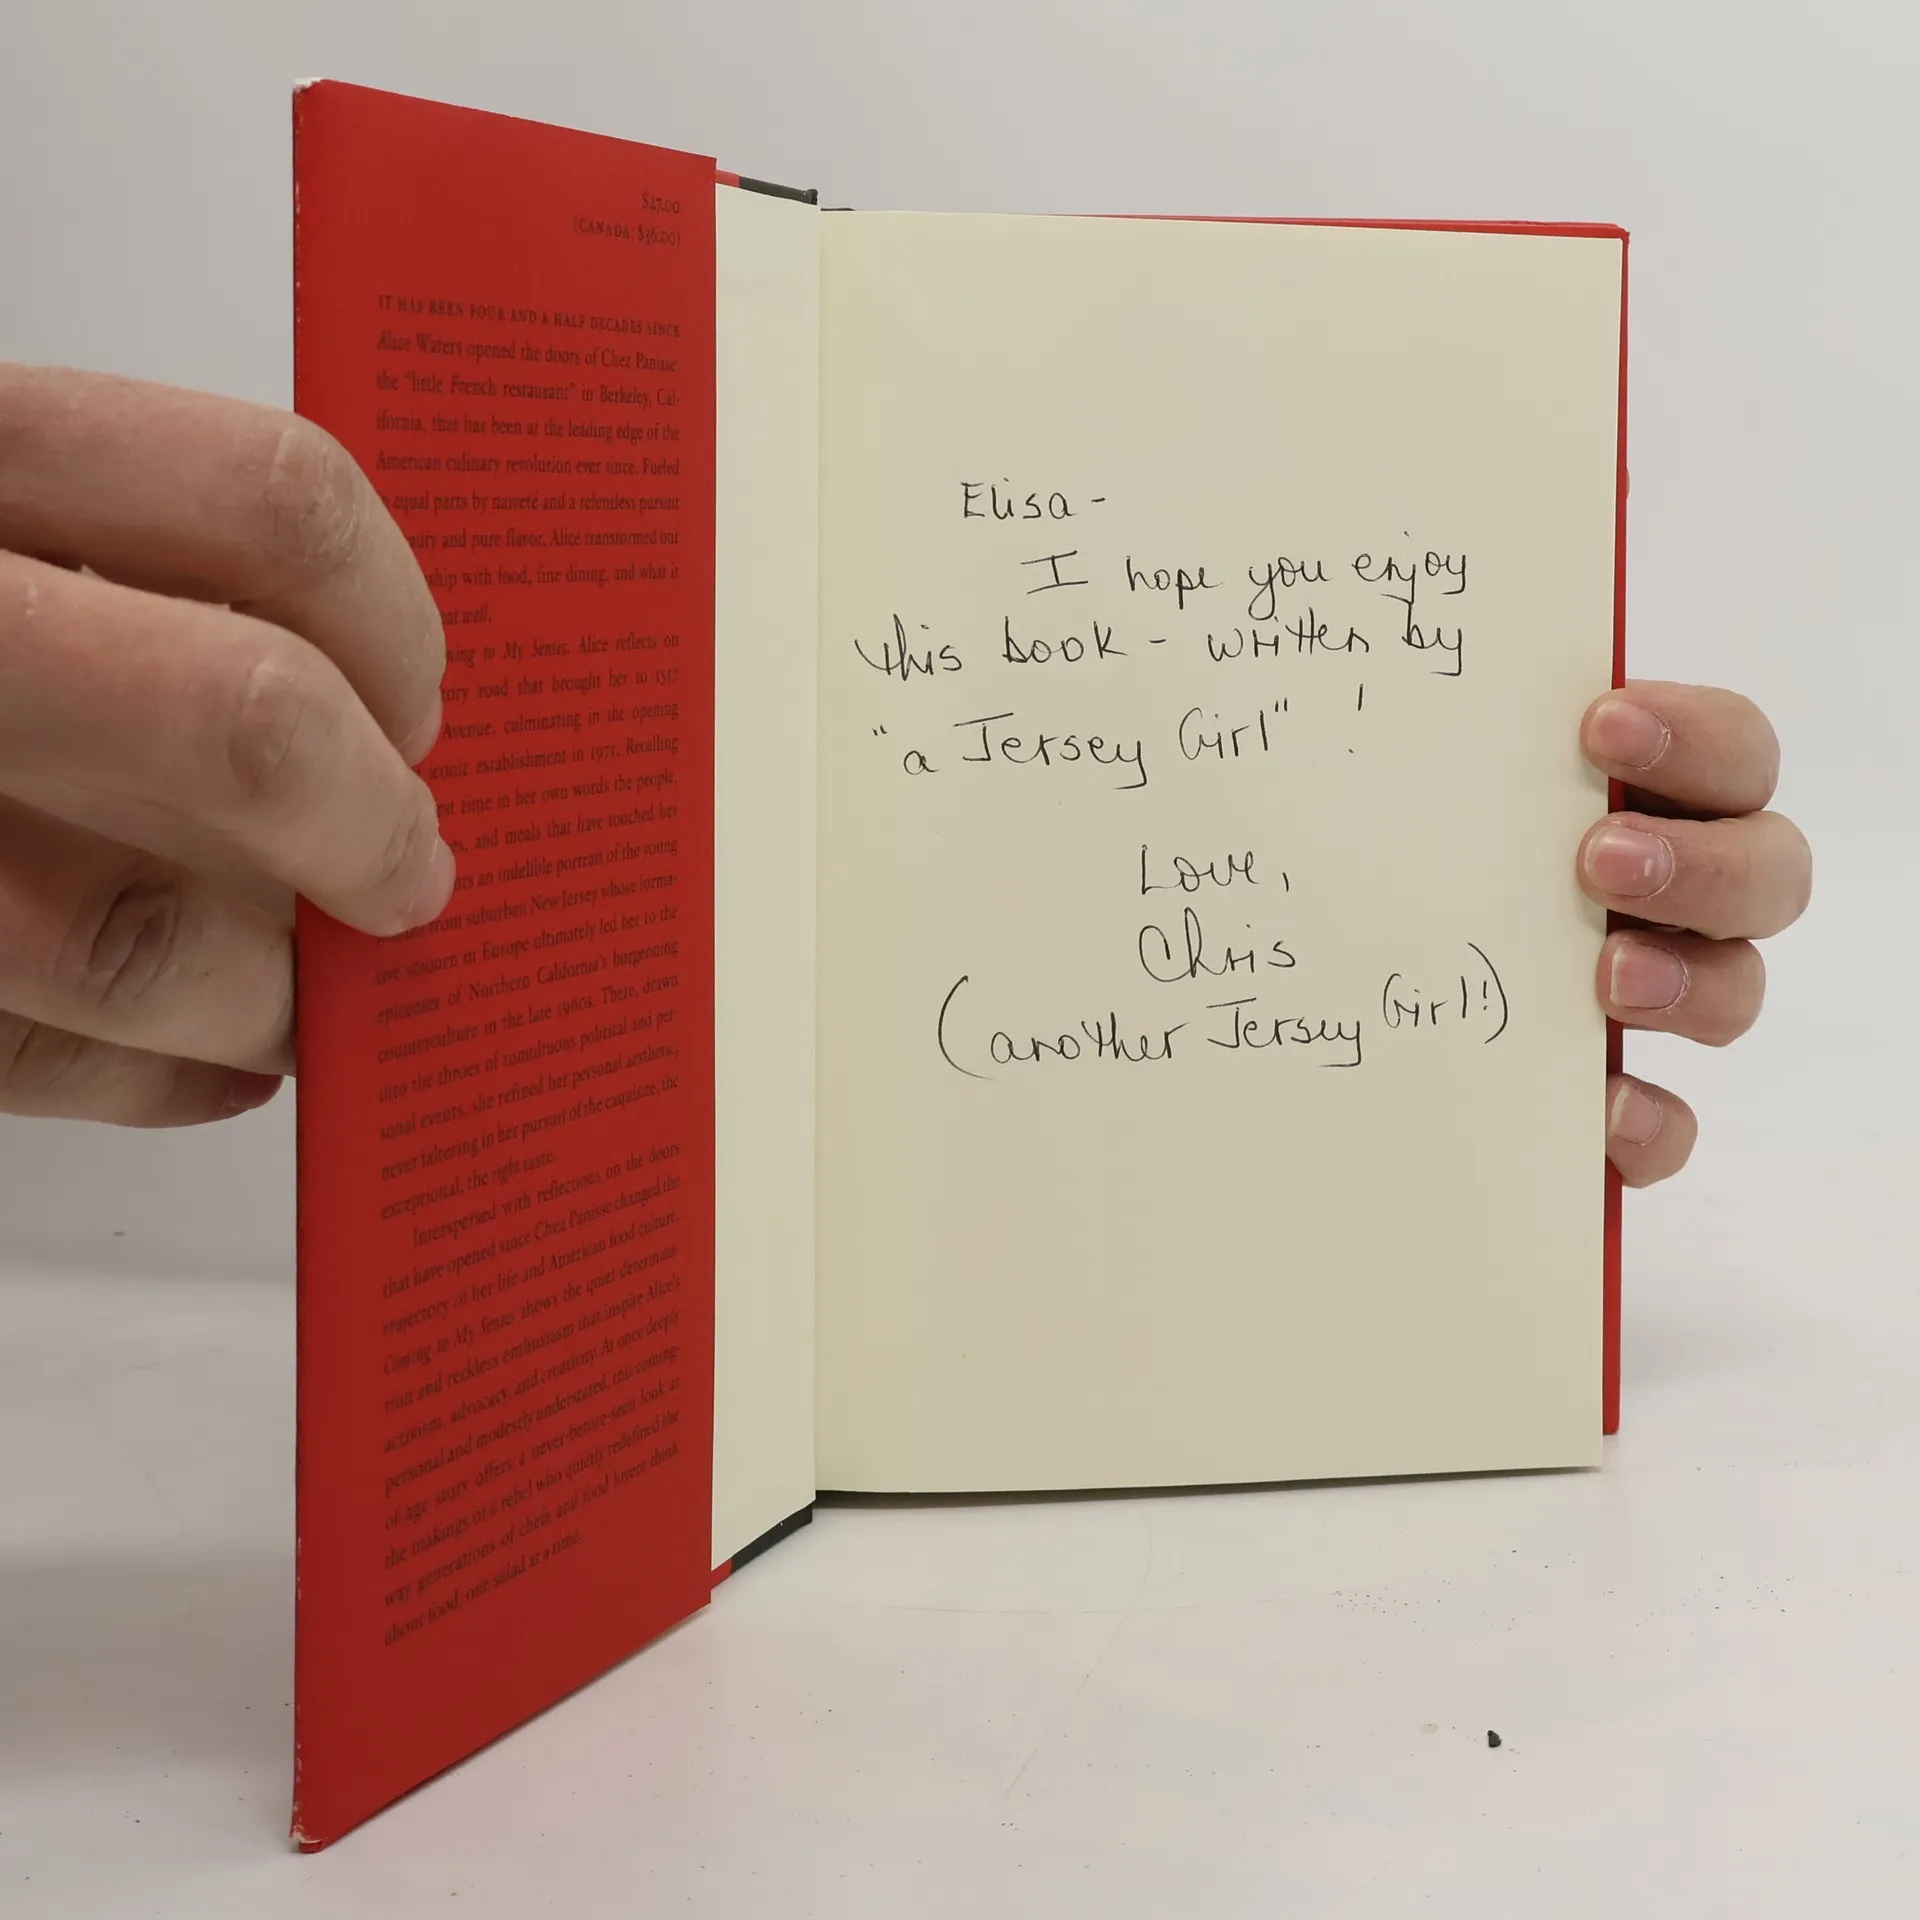 $27.00
(CANADA: $36.00)
IT HAS BEEN FOUR AND A HALF DECADES SINCE
Alice Waters opened the doors of Chez Panisse,
the "little French restaurant" in Berkeley, Cal-
ifornia, that has been at the leading edge of the
American culinary revolution ever since. Fueled
equal parts by naiveté and a relentless pursuit
and pure flavor, Alice transformed our
with food, fine dining, and what it
well.
to My Senses, Alice reflects on
road that brought her to 1517
Avenue, culminating in the opening
iconic establishment in 1971. Recalling
time in her own words the people,
and meals that have touched her
an indelible portrait of the young
from suburban New Jersey whose forma-
tive sojourn in Europe ultimately led her to the
epicenter of Northern California's burgeoning
counterculture in the late 1960s. There, drawn
into the throes of tumultuous political and per-
sonal events, she refined her personal aesthetic,
never faltering in her pursuit of the exquisite, the
exceptional, the right taste.
Interspersed with reflections on the doors
that have opened since Chez Panisse changed the
trajectory of her life and American food culture,
Coming to My Senses shows the quiet determina-
tion and reckless enthusiasm that inspire Alice's
activism, advocacy, and creativity. At once deeply
personal and modestly understated, this coming-
of-age story offers a never-before-seen look at
the makings of a rebel who quietly redefined the
way generations of chefs and food lovers think
about food, one salad at a time.
Elisa -
I hope you enjoy
this book - written by
"a Jersey Girl" !
Love,
Chris
(another Jersey Girl!)